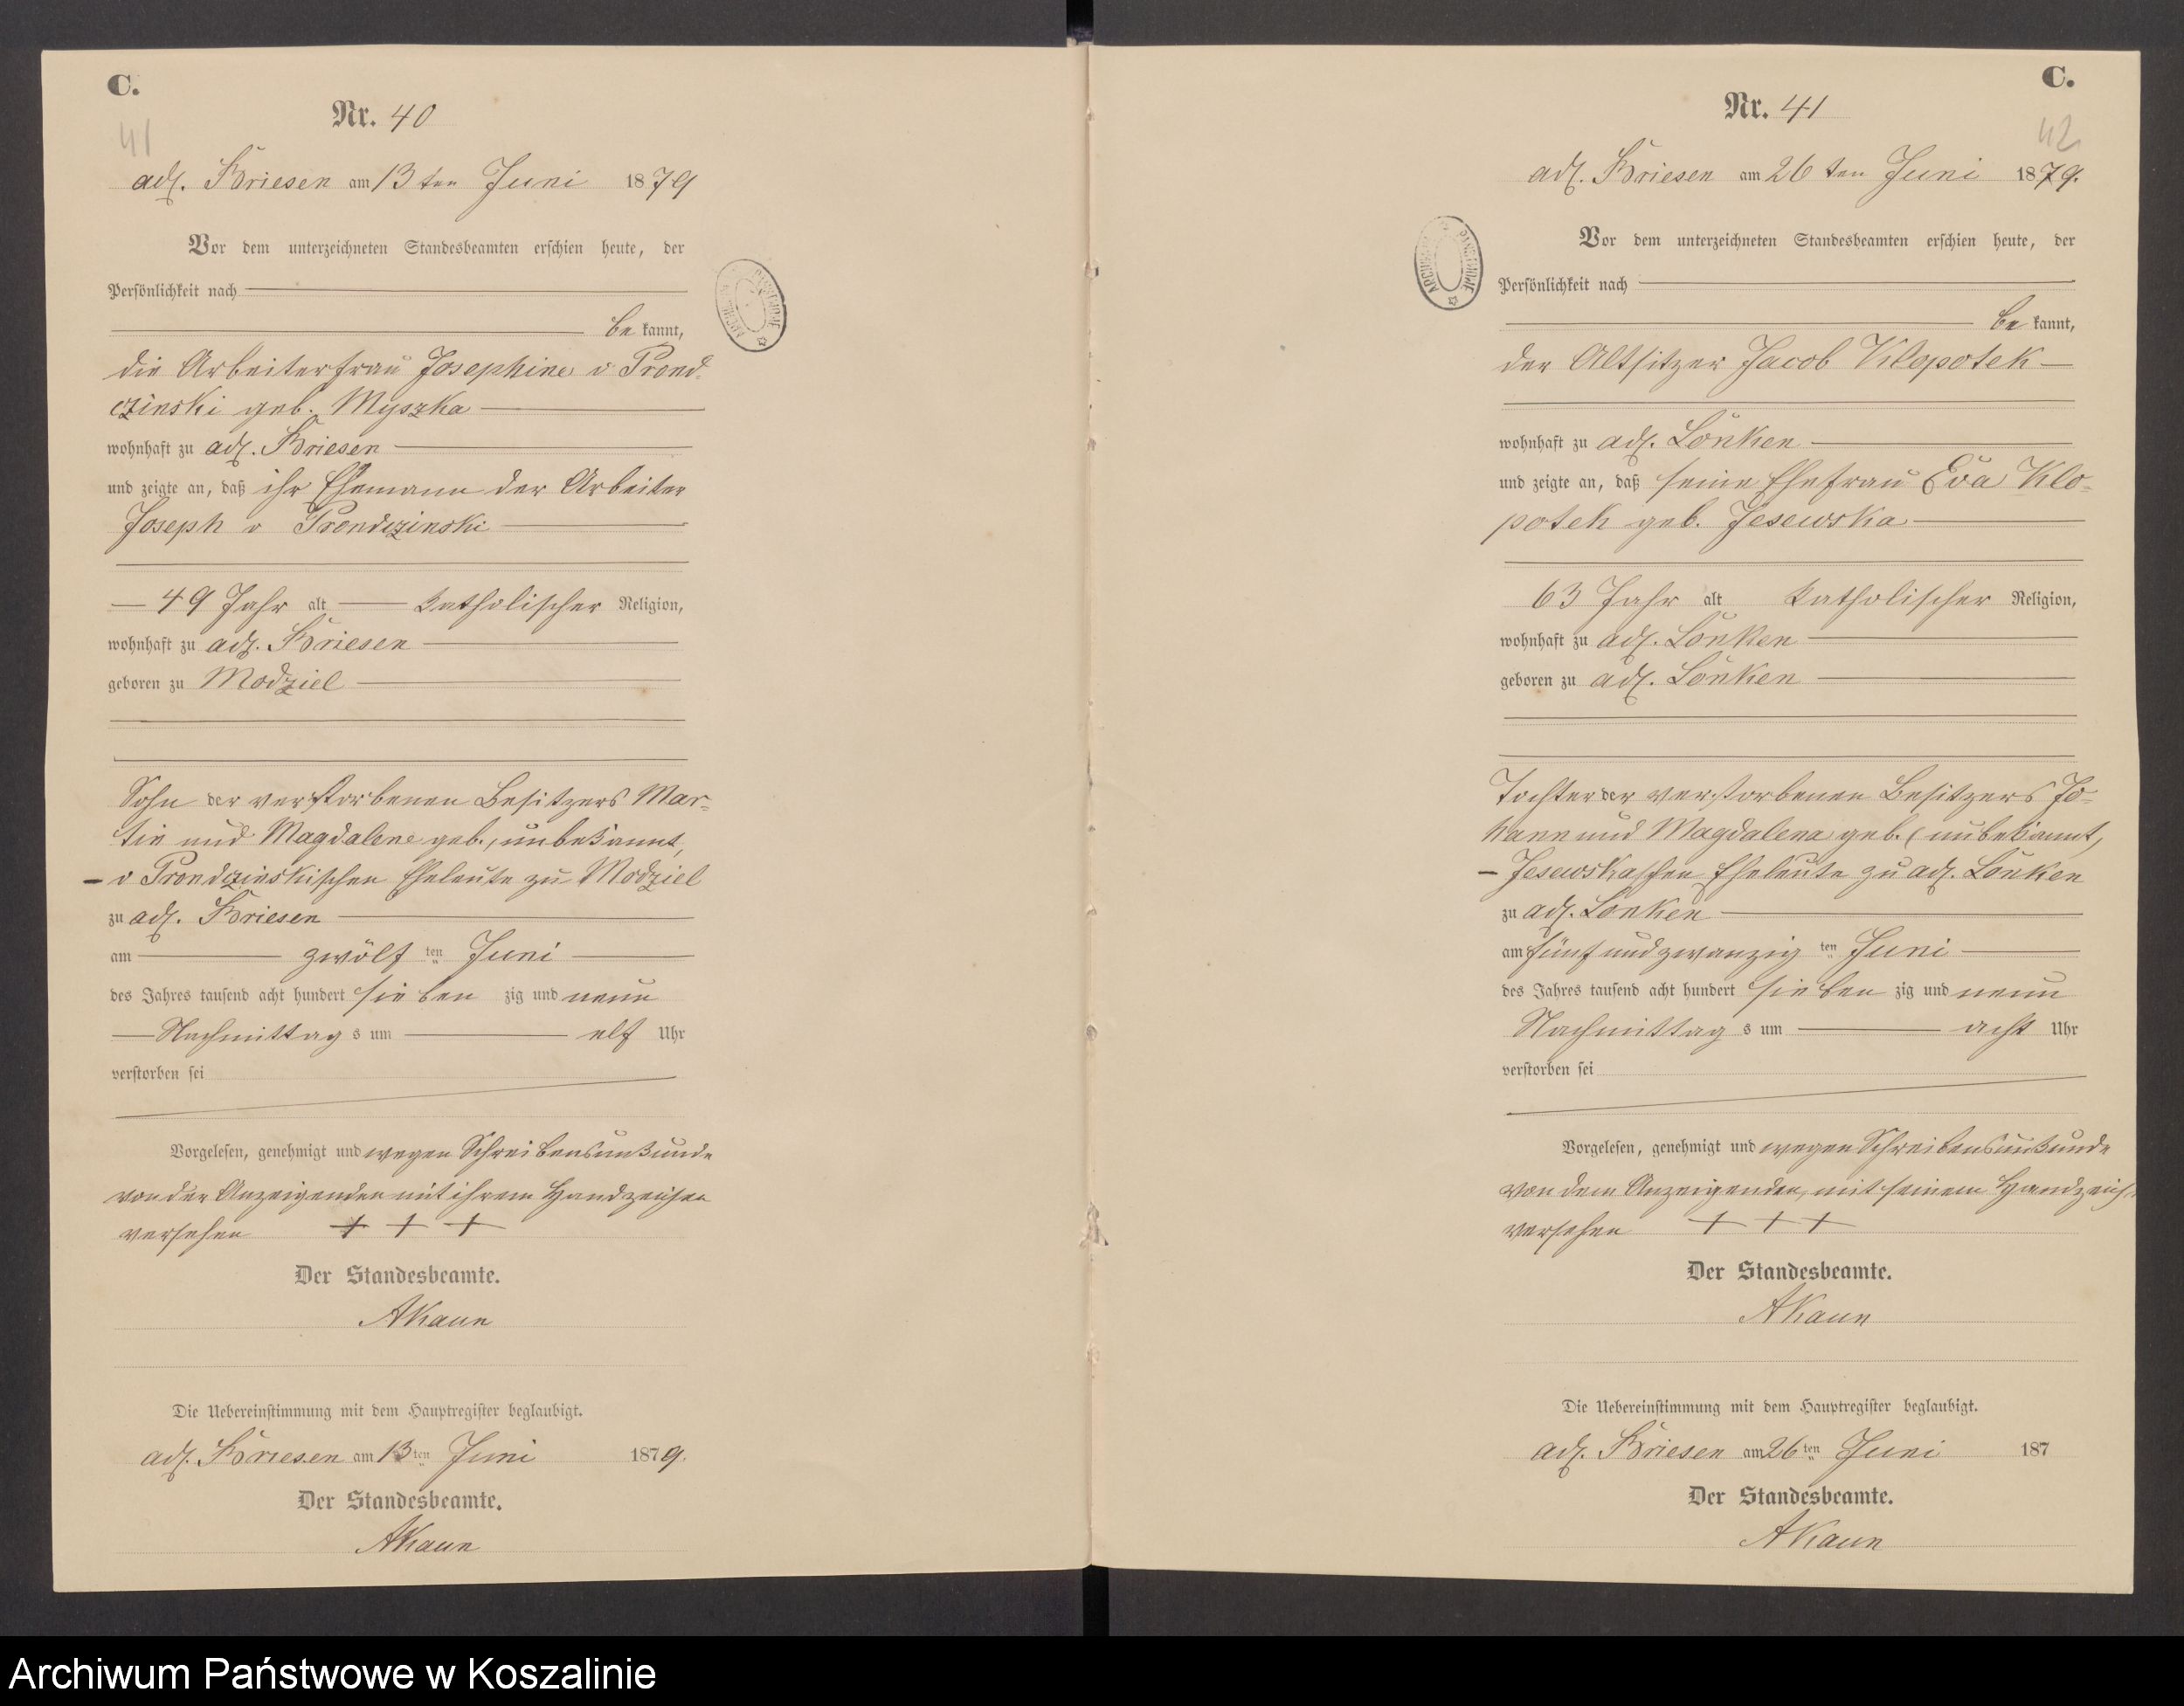 C.
Nr. 40
41
adl. Briesen am 13 ten Juni 1879
Vor dem unterzeichneten Standesbeamten erschien heute, der
Persönlichkeit nach
be kannt,
die Arbeiterfrau Josephine v Prond-
czinski geb. Myszka
wohnhaft zu adl. Briesen
und zeigte an, daß ihr Ehemann der Arbeiter
Joseph v Prondczinski
49 Jahr alt katholischer Religion,
wohnhaft zu adl. Briesen
geboren zu Modziel
Sohn der verstorbenen Besitzers Mar-
tin und Magdalene geb., unbekannt,
v Prondczinskischen Eheleute zu Modziel
zu adl. Briesen
am zwölf ten Juni
des Jahres tausend acht hundert sieben zig und neun
Nachmittag s um elf Uhr
verstorben sei
Vorgelesen, genehmigt und wegen Schreibensunkunde
von der Anzeigenden mit ihrem Handzeichen
versehen + + +
Der Standesbeamte.
AKaun
Die Uebereinstimmung mit dem Hauptregister beglaubigt.
adl. Briesen am 13 ten Juni 1879.
Der Standesbeamte.
AKaun
C.
Nr. 41
42
adl. Briesen am 26 ten Juni 1879.
Vor dem unterzeichneten Standesbeamten erschien heute, der
Persönlichkeit nach
be kannt,
der Altsitzer Jacob Klopotek
wohnhaft zu adl. Lonken
und zeigte an, daß seine Ehefrau Eva Klo-
potek geb. Jesewska
63 Jahr alt katholischer Religion,
wohnhaft zu adl. Lonken
geboren zu adl. Lonken
Tochter der verstorbenen Besitzers Jo-
hann und Magdalena geb. (unbekannt,
Jesewskaschen Eheleute zu adl. Lonken
zu adl. Lonken
am fünf und zwanzig ten Juni
des Jahres tausend acht hundert sieben zig und neun
Nachmittag s um acht Uhr
verstorben sei
Vorgelesen, genehmigt und wegen Schreibensunkunde
von dem Anzeigenden, mit seinem Handzeich.
versehen + + +
Der Standesbeamte.
AKaun
Die Uebereinstimmung mit dem Hauptregister beglaubigt.
adl. Briesen am 26 ten Juni 187
Der Standesbeamte.
AKaun
Archiwum Państwowe w Koszalinie